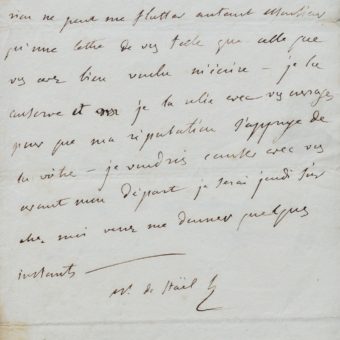 rien ne peut me flatter autant Monsieur
qu'une lettre de vous telle que celle que
vs avez bien voulu m'écrire – je la
conserve et je la relie avec vos ouvrages
pour que ma réputation s'appuye de
la vôtre – je voudrais causer avec vs
avant mon départ je serai jeudi soir
chez moi venez me donner quelques
instants
N. de Staël